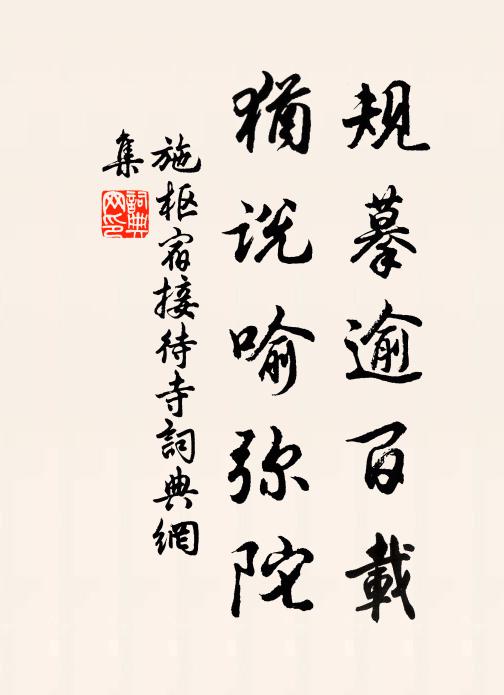 規摹逾百載
猶说喻弥陀
施枢宿接待寺詞典網
集
詞典網印